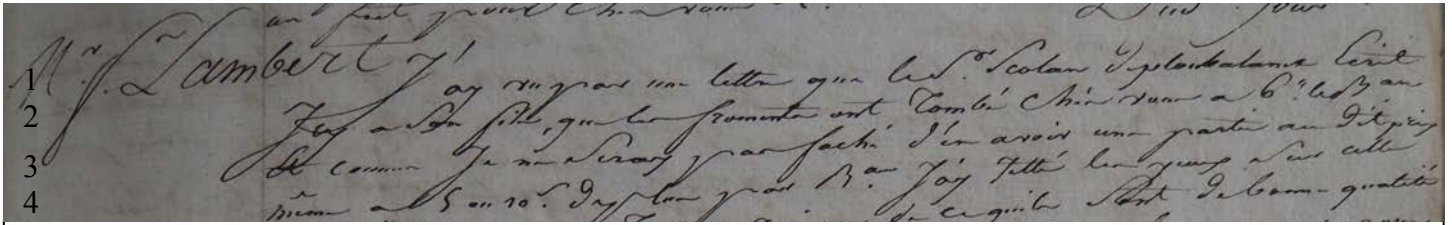 1 Mr. Lambert J'ay vu par une lettre que le Sr. Scolan de ploubalanec Ecrit
2 Icy a Son fils, que les froments ont Tombé chez vous a 6# le Bau
3 Et comme Je ne Seray pas faché d'en avoir une partie au dit prix
4 même a 5 ou 10s. de plus par Bau J'ay Jetté les yeux Sur cette
de ce quils Sont de bonne qualité